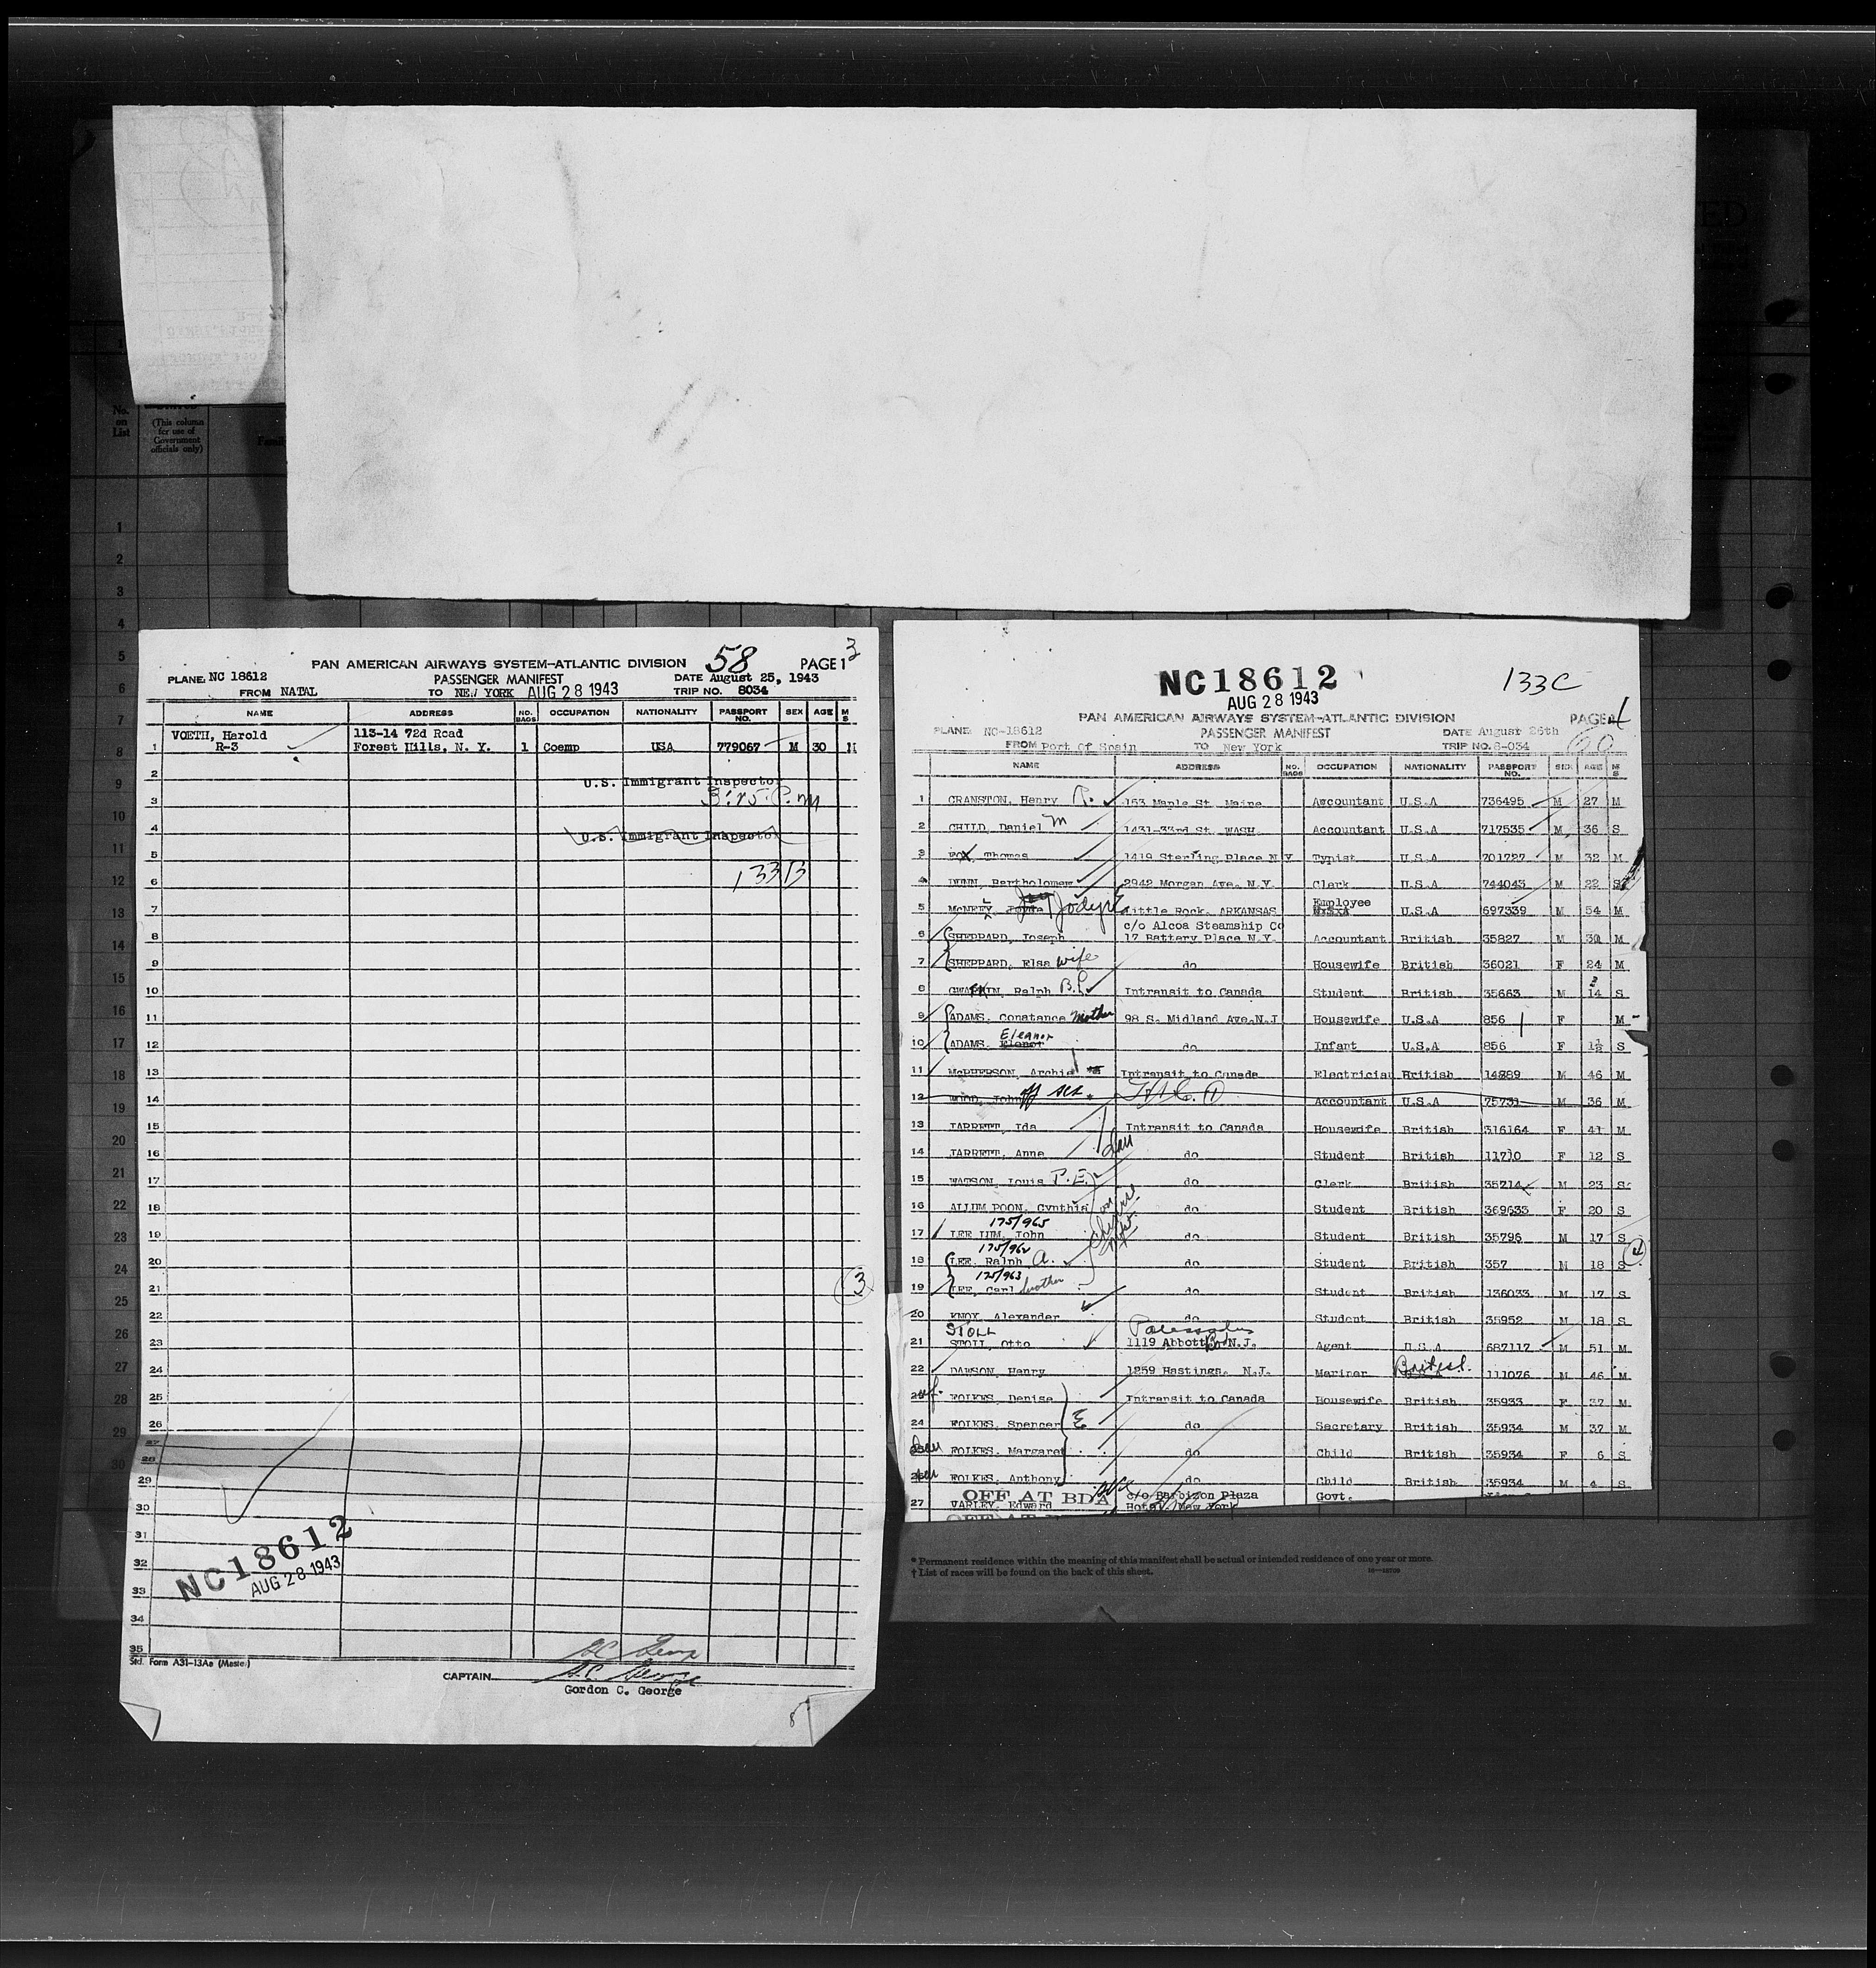 No. on List
(This column for use of Government officials only)
58
3
PAN AMERICAN AIRWAYS SYSTEM—ATLANTIC DIVISION PAGE 1
PLANE NC 18612 PASSENGER MANIFEST DATE August 25, 1943
FROM NATAL TO NEW YORK AUG 28 1943 TRIP NO. 8034
NAME ADDRESS NO. BAGS OCCUPATION NATIONALITY PASSPORT NO. SEX AGE M S
VOETH, Harold 113-14 72d Road
1 R-3 Forest Hills, N. Y. 1 Coemp USA 779067 M 30 M
2 U.S. Immigrant Inspector
3 3:25 P.m
4 U.S. Immigrant Inspector
5
6 133B
7
8
9
10
11
12
13
14
15
16
17
18
19
20
21 3
22
23
24
25
26
27
28
29
30
31
32
33
34
35
NC18612
AUG 28 1943
Std. Form A31-13Aa (Master)
CAPTAIN
Gordon C. George
NC18612
AUG 28 1943
133C
PAN AMERICAN AIRWAYS SYSTEM—ATLANTIC DIVISION PAGE
PLANE NC-18612 PASSENGER MANIFEST DATE August 26th
FROM Port Of Spain TO New York TRIP NO. 8-034
NAME ADDRESS NO. BAGS OCCUPATION NATIONALITY PASSPORT NO. SEX AGE M S
1 CRANSTON, Henry 163 Maple St. Maine Awcountant U.S.A 736495 M 27 M
2 CHILD, Daniel M 1431-33rd St. WASH. Accountant U.S.A 717535 M 36 S
3 FOX, Thomas 1419 Sterling Place N Y Typist U.S.A 701727 M 32 M
4 LYNN, Bartholomew 2942 Morgan Ave. N.Y. Clerk U.S.A 744043 M 22 S
5 Little Rock, ARKANSAS Employee U.S.A 697339 M 54 M
c/o Alcoa Steamship Co
6 SHEPPARD, Joseph 17 Battery Place N.Y. Accountant British 35827 M 30 M
7 SHEPPARD, Elsa wife do Housewife British 36021 F 24 M
8 Ralph B.P. Intransit to Canada Student British 35663 M 14 S
9 ADAMS, Constance Mother 98 S. Midland Ave.N.J Housewife U.S.A 856 F M
Eleanor
10 ADAMS, do Infant U.S.A 856 F 1½ S
11 McPHERSON, Archie Intransit to Canada Electrician British 14889 M 46 M
12 WOOD, John Accountant U.S.A 75731 M 36 M
13 JARRETT, Ida Intransit to Canada Housewife British 316164 F 41 M
14 JARRETT, Anne do Student British 11710 F 12 S
15 WATSON, Louis P.E. do Clerk British 35214 M 23 S
16 ALLUM POON, Cynthia do Student British 369633 F 20 S
175/965
17 LEE LUM, John do Student British 35796 M 17 S
175/962
18 LEE, Ralph A. do Student British 357 M 18 S
175/963
19 LEE, Carl brother do Student British 136033 M 17 S
20 KNOX, Alexander do Student British 35952 M 18 S
STOLL
21 STOLL, Otto 1119 Abbott N.J. Agent U.S.A 687117 M 51 M
22 DAWSON, Henry 1259 Hastings, N.J. Mariner British 111076 M 46 M
FOLKES, Denise Intransit to Canada Housewife British 35933 F 37 M
24 FOLKES, Spencer E do Secretary British 35934 M 37 M
FOLKES, Margaret do Child British 35934 F 6 S
FOLKES, Anthony do Child British 35934 M 4 S
OFF AT BDA c/o Barbizon Plaza Govt.
27 VARLEY, Edward Hotel, New York
* Permanent residence within the meaning of this manifest shall be actual or intended residence of one year or more.
† List of races will be found on the back of this sheet.